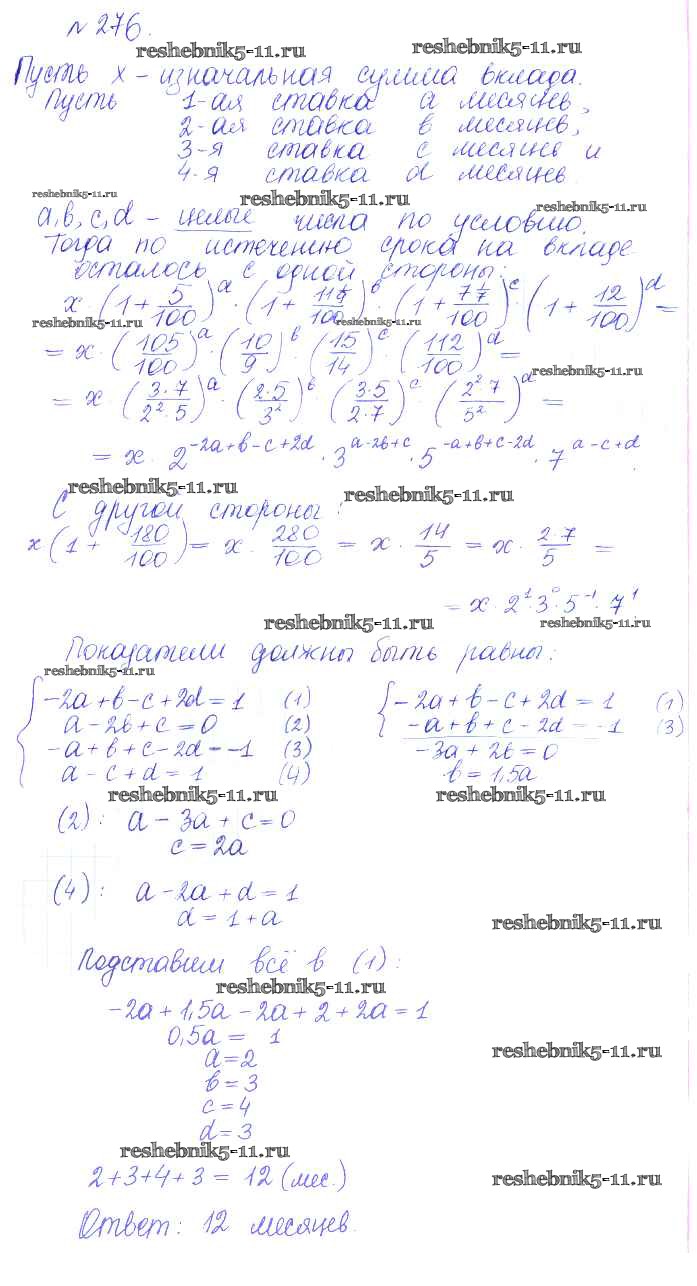 № 276.
reshebnik5-11.ru reshebnik5-11.ru
Пусть x - изначальная сумма вклада.
Пусть 1-ая ставка a месяцев,
2-ая ставка в месяцев,
3-я ставка c месяцев и
4-я ставка d месяцев.
reshebnik5-11.ru reshebnik5-11.ru reshebnik5-11.ru
a, b, c, d - целые числа по условию.
Тогда по истечению срока на вкладе
осталось с одной стороны:
x · (1 + 5/100)^a · (1 + 11 1/9/100)^b · (1 + 7 1/7/100)^c · (1 + 12/100)^d =
reshebnik5-11.ru reshebnik5-11.ru
= x · (105/100)^a · (10/9)^b · (15/14)^c · (112/100)^d =
reshebnik5-11.ru
= x · (3·7/2²·5)^a · (2·5/3²)^b · (3·5/2·7)^c · (2²·7/5²)^d =
= x · 2^(-2a+b-c+2d) · 3^(a-2b+c) · 5^(-a+b+c-2d) · 7^(a-c+d)
reshebnik5-11.ru reshebnik5-11.ru
С другой стороны:
x (1 + 180/100) = x · 280/100 = x · 14/5 = x · 2·7/5 =
= x · 2^1 · 3^0 · 5^-1 · 7^1
reshebnik5-11.ru reshebnik5-11.ru
Показатели должны быть равны:
reshebnik5-11.ru
-2a + b - c + 2d = 1 (1)
a - 2b + c = 0 (2)
-a + b + c - 2d = -1 (3)
a - c + d = 1 (4)
-2a + b - c + 2d = 1 (1)
-a + b + c - 2d = -1 (3)
-3a + 2b = 0
b = 1,5a
reshebnik5-11.ru reshebnik5-11.ru
(2): a - 3a + c = 0
c = 2a
(4): a - 2a + d = 1
d = 1 + a
reshebnik5-11.ru
Подставим всё в (1):
reshebnik5-11.ru
-2a + 1,5a - 2a + 2 + 2a = 1
0,5a = 1
reshebnik5-11.ru
a = 2
b = 3
c = 4
d = 3
reshebnik5-11.ru
2 + 3 + 4 + 3 = 12 (мес.)
reshebnik5-11.ru
Ответ: 12 месяцев.